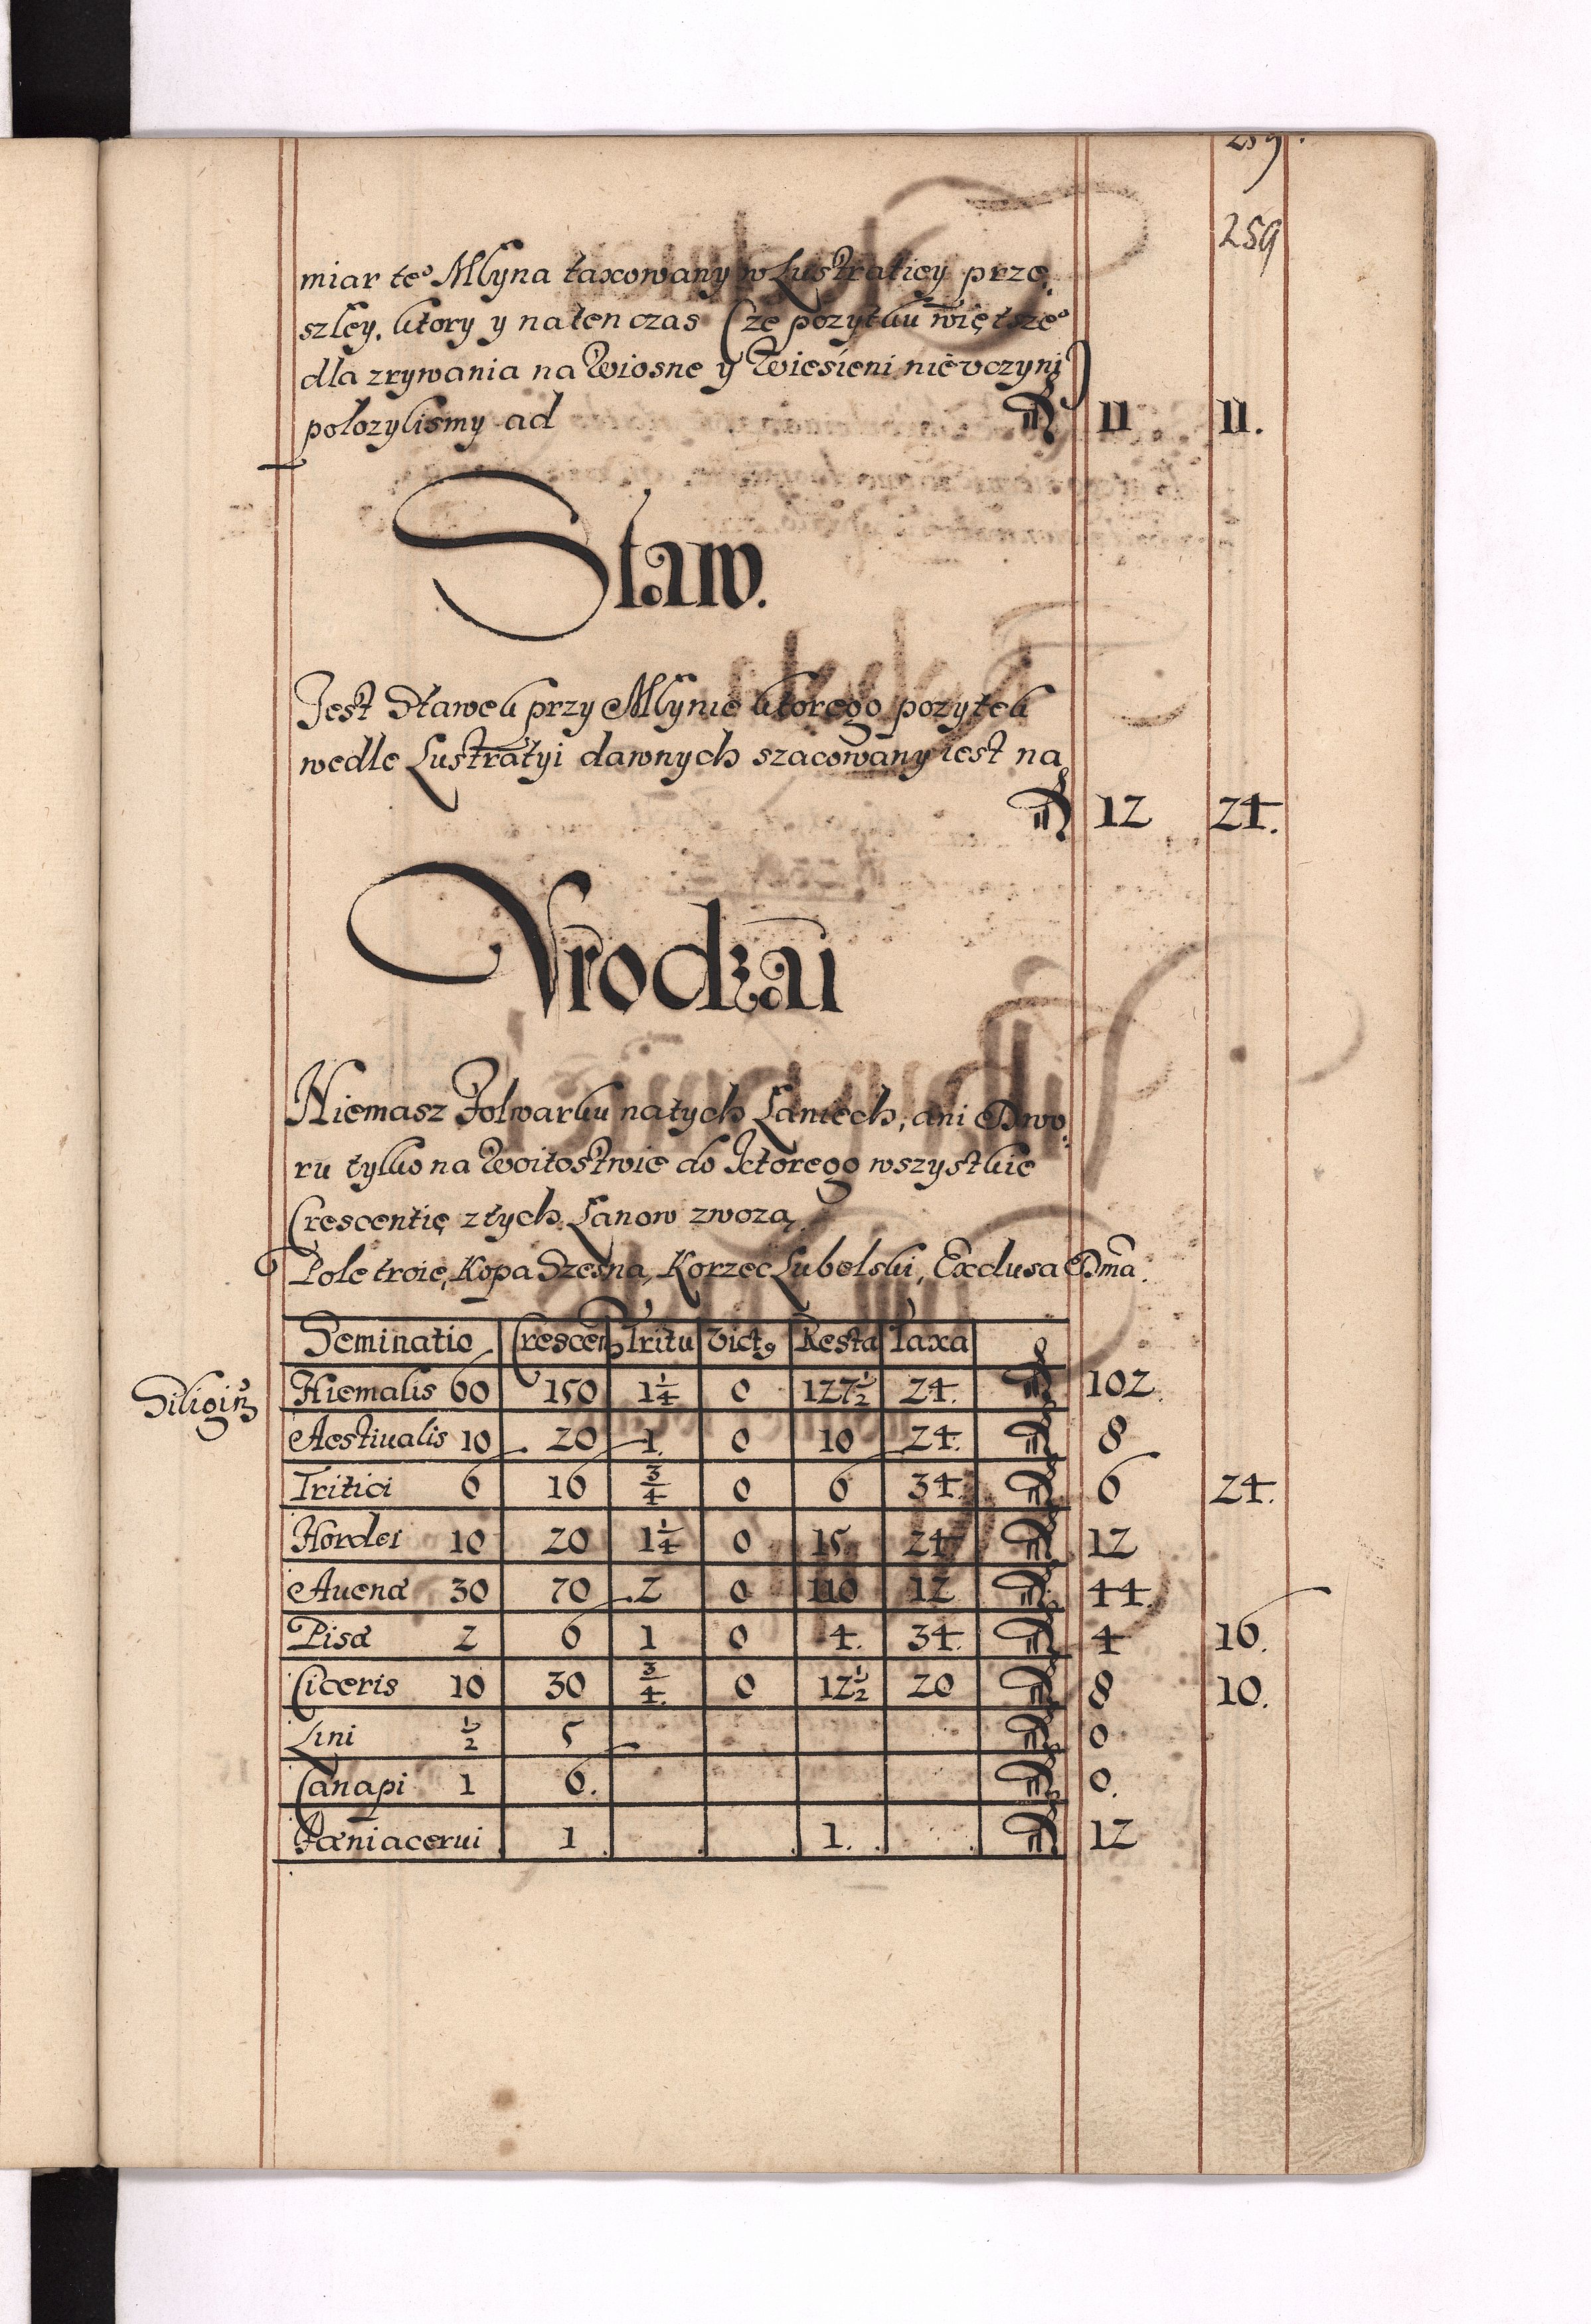 259.
259
miar te° Młyna taxowany w Lustratiey prze:
szłey. ktory y na ten czas (ze pozytku większe°
dla zrywania na Wiosne y Wiesieni nievczyni)
połozylismy ad fl 11 11.
Staw.
Jest Stawek przy Młynie ktorego pozytek
wedle Lustratyi dawnych szacowany iest na
fl 12 24.
Vrodzai
Niemasz Folwarku natych Łaniech, ani Dwo:
ru tylko na Woitostwie do Ktorego wszystkie
Crescentię z tych Łanow zwozą,
Pole troie, Kopa Szesna, Korzec Lubelski, Exclusa Dma.
Seminatio Crescen Tritu Vict9 Resta Taxa
Siligin Hiemalis 60 150 1¼ 0 127½ 24. fl 102.
Aestiualis 10 20 1. 0 10 24. fl 8
Tritici 6 16 ¾ 0 6 34 fl 6 24.
Hordei 10 20 1¼ 0 15 24 fl 12
Auenæ 30 70 2 0 110 12 fl 44.
Pisæ 2 6 1 0 4. 34. fl 4 16.
Ciceris 10 30 ¾ 0 12½ 20 fl 8 10.
Lini ½ 5 fl 0
Canapi 1 6. fl 0.
Fæni acerui 1 1. fl 12